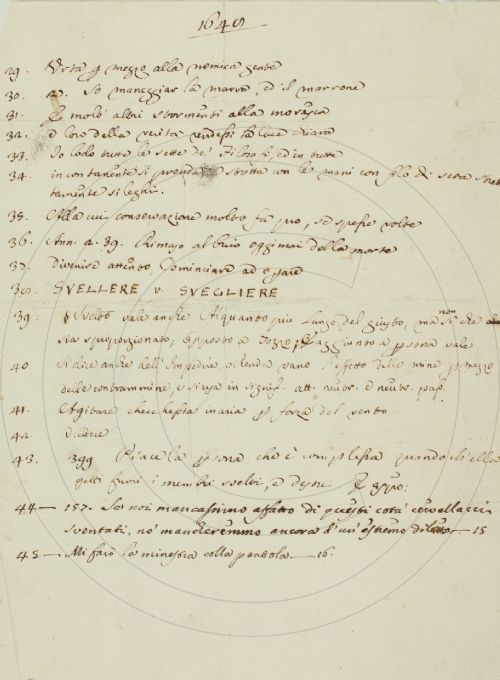 1645
29. Urta p mezzo alla nemica gente
30. 27. So maneggiar la marra, ed il marrone
31. E molti altri stormenti alla moresca
32. e loro della verità rendessi la luce chiara
33. Io lodo tutte le sette de' Filosofi, ed in tutte
34. incontanente si prenda stretta con le mani con filo di seta stret
tamente si leghi.
35. Alla cui conservazione molto fa pro, se spesse volte
36. Ann. 2. 39. Rimaso al bujo oggimai della morte
37. Divenire attento, Cominciare ad oprare
38. SVELLERE v. SVEGLIERE
39. Svelto vale anche Alquanto più lungo del giusto, ma non sì che
sia sproporzionato; opposto a Tozzo; e aggiunto a psona vale
40 Si dice anche dell' Impedire, o render vano l'effetto delle mine p mezzo
delle contrammine, e si usa in signif. att. neutr. e neutr. pass.
41. Agitare checchessia in aria p forza del vento
42. Uccidere
43. 399 Piace la psona che è complessa quando ch'ella
getti fuori i membri svelti, e destri.
44 — 157. Se noi mancassimo affatto di questi cotà cervellacci
sventati, no' mancheremmo ancora d'un estremo diletto — 15
45 — Mi farò la minestra colla pentola — 16.